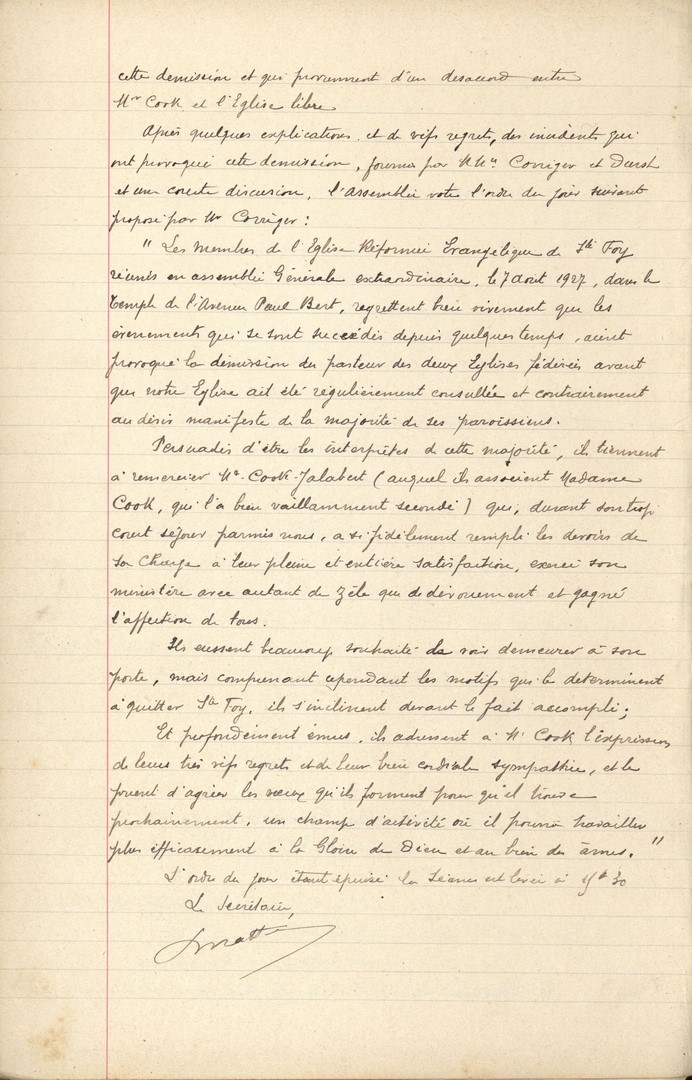 cette demission et qui proviennent d'un desacord entre
Mr Cook et l'Eglise libre
Après quelques explications et de vifs regrets, des incidents qui
ont provoqué cette demission, fournis par MMrs Corriger et Durst
et une courte discussion, l'assemblée vote l'ordre du jour suivant
proposé par Mr Corriger :
" Les membres de l'Eglise Réformée Evangélique de Ste Foy
réunis en assemblée Générale extraordinaire, le 7 août 1927, dans le
Temple de l'Avenue Paul Bert, regrettent bien vivement que les
évenements qui se sont succédés depuis quelques temps, aient
provoqué la démission du pasteur des deux Eglises fédérées avant
que notre Eglise ait été régulièrement consultée et contrairement
au désir manifeste de la majorité de ses paroissiens.
Persuadés d'être les interprètes de cette majorité, ils tiennent
à remercier Mr Cook-Jalabert (auquel ils associent Madame
Cook, qui l'a bien vaillamment secondé) qui, durant son trop
court séjour parmis nous, a si fidèlement rempli les devoirs de
sa charge à leur pleine et entière satisfaction, exercé son
ministère avec autant de zèle que de dévouement et gagné
l'affection de tous.
Ils eussent beaucoup souhaité le voir demeurer à son
poste, mais comprenant cependant les motifs qui le determinent
à quitter Ste Foy, ils s'inclinent devant le fait accompli ;
Et profondément émus, ils adressent à Mr Cook l'expression
de leurs très vifs regrets et de leur bien cordiale sympathie, et le
prient d'agréer les vœux qu'ils forment pour qu'il trouve
prochainement, un champ d'activité où il pourra travailler
plus efficasement à la Gloire de Dieu et au bien des âmes. "
L'ordre du jour étant épuisé la séance est levée à
Le Secrétaire,